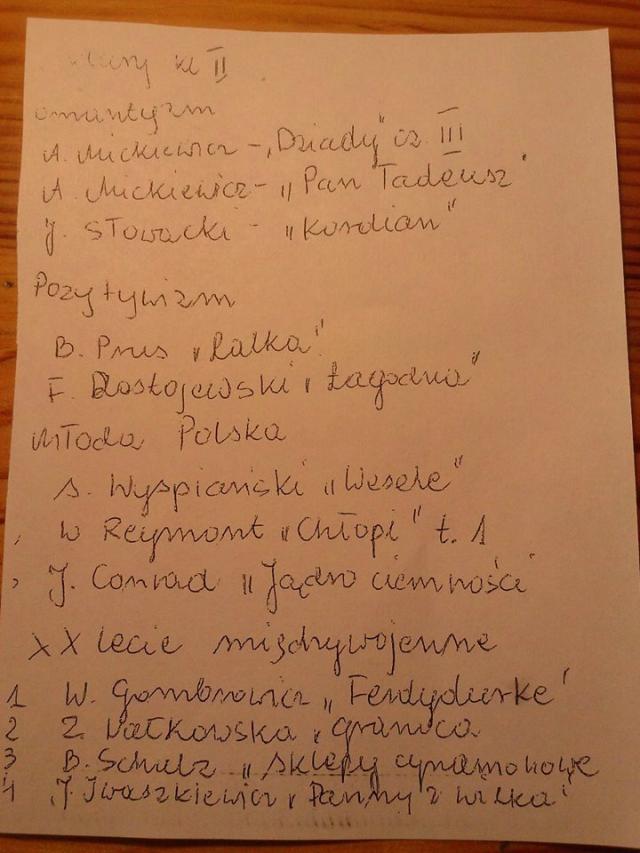 kl II
omantyzm
A. Mickiewicz - „Dziady" cz. III
A. Mickiewicz - „Pan Tadeusz"
J. Słowacki - „Kordian"
Pozytywizm
B. Prus „Lalka"
F. Dostojewski „Łagodna"
Młoda Polska
S. Wyspiański „Wesele"
W Reymont „Chłopi" t. 1
J. Conrad „Jądro ciemności"
XX lecie międzywojenne
1 W. Gombrowicz „Ferdydurke"
2 Z. Nałkowska „Granica
3 B. Schulz „Sklepy cynamonowe
4 J. Iwaszkiewicz „Panny z Wilka"